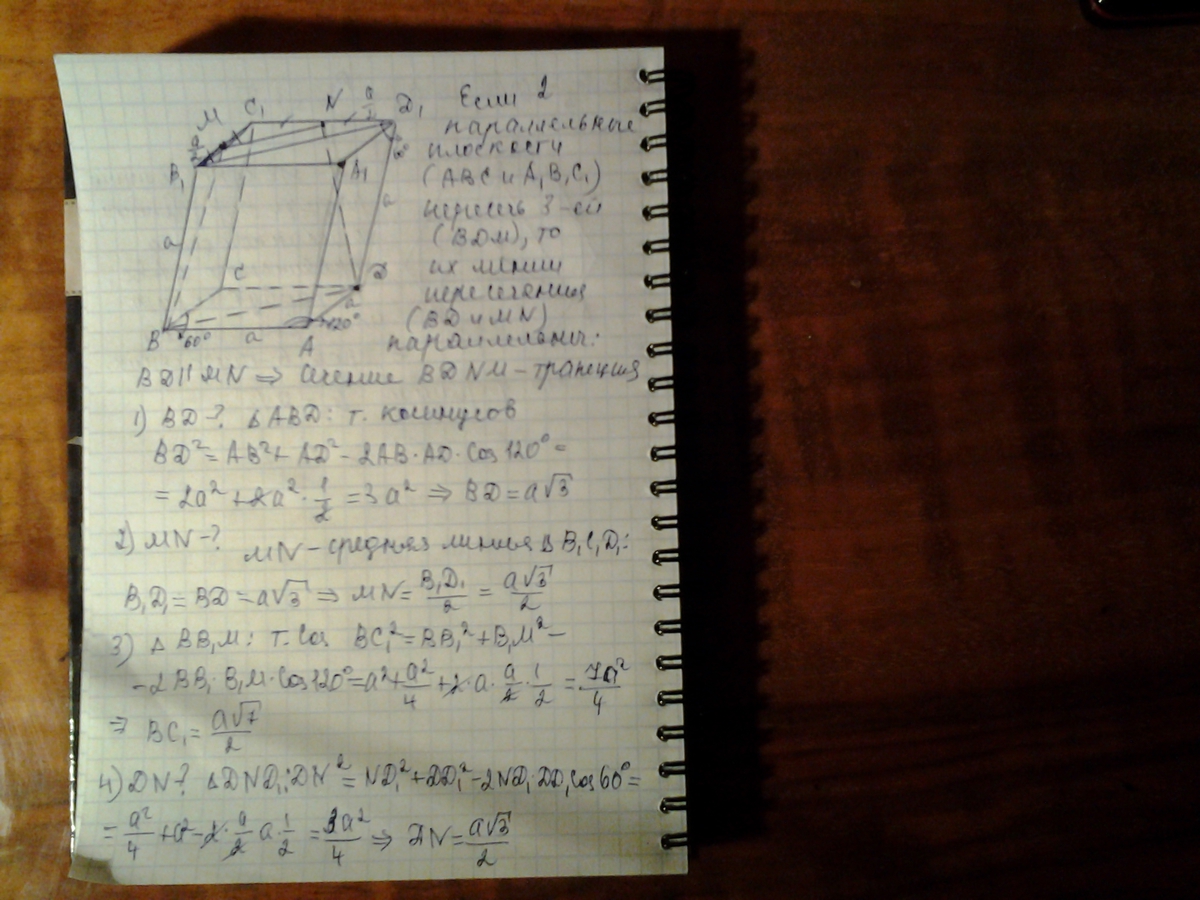 M C₁ N a/2 D₁
a/2
B₁ A₁
a a
C D
a
B 60° a A 120°
Если 2
параллельные
плоскости
(ABC и A₁B₁C₁)
пересечь 3-ей
(BDM), то
их линии
пересечения
(BD и MN)
параллельны.
BD || MN ⇒ Сечение BDNM – трапеция
1) BD -? ΔABD: т. косинусов
BD² = AB² + AD² - 2AB·AD·Cos120° =
= 2a² + 2a² · 1/2 = 3a² ⇒ BD = a√3
2) MN -? MN – средняя линия Δ B₁C₁D₁:
B₁D₁ = BD = a√3 ⇒ MN = B₁D₁/2 = a√3/2
3) Δ BB₁M: т. Cos BC₁² = BB₁² + B₁M² -
- 2BB₁·B₁M·Cos120° = a² + a²/4 + 2·a·a/2·1/2 = 7a²/4
⇒ BC₁ = a√7/2
4) DN? ΔDND₁: DN² = ND₁² + DD₁² - 2ND₁·DD₁cos60° =
= a²/4 + a² - 2·a/2·a·1/2 = 3a²/4 ⇒ DN = a√3/2